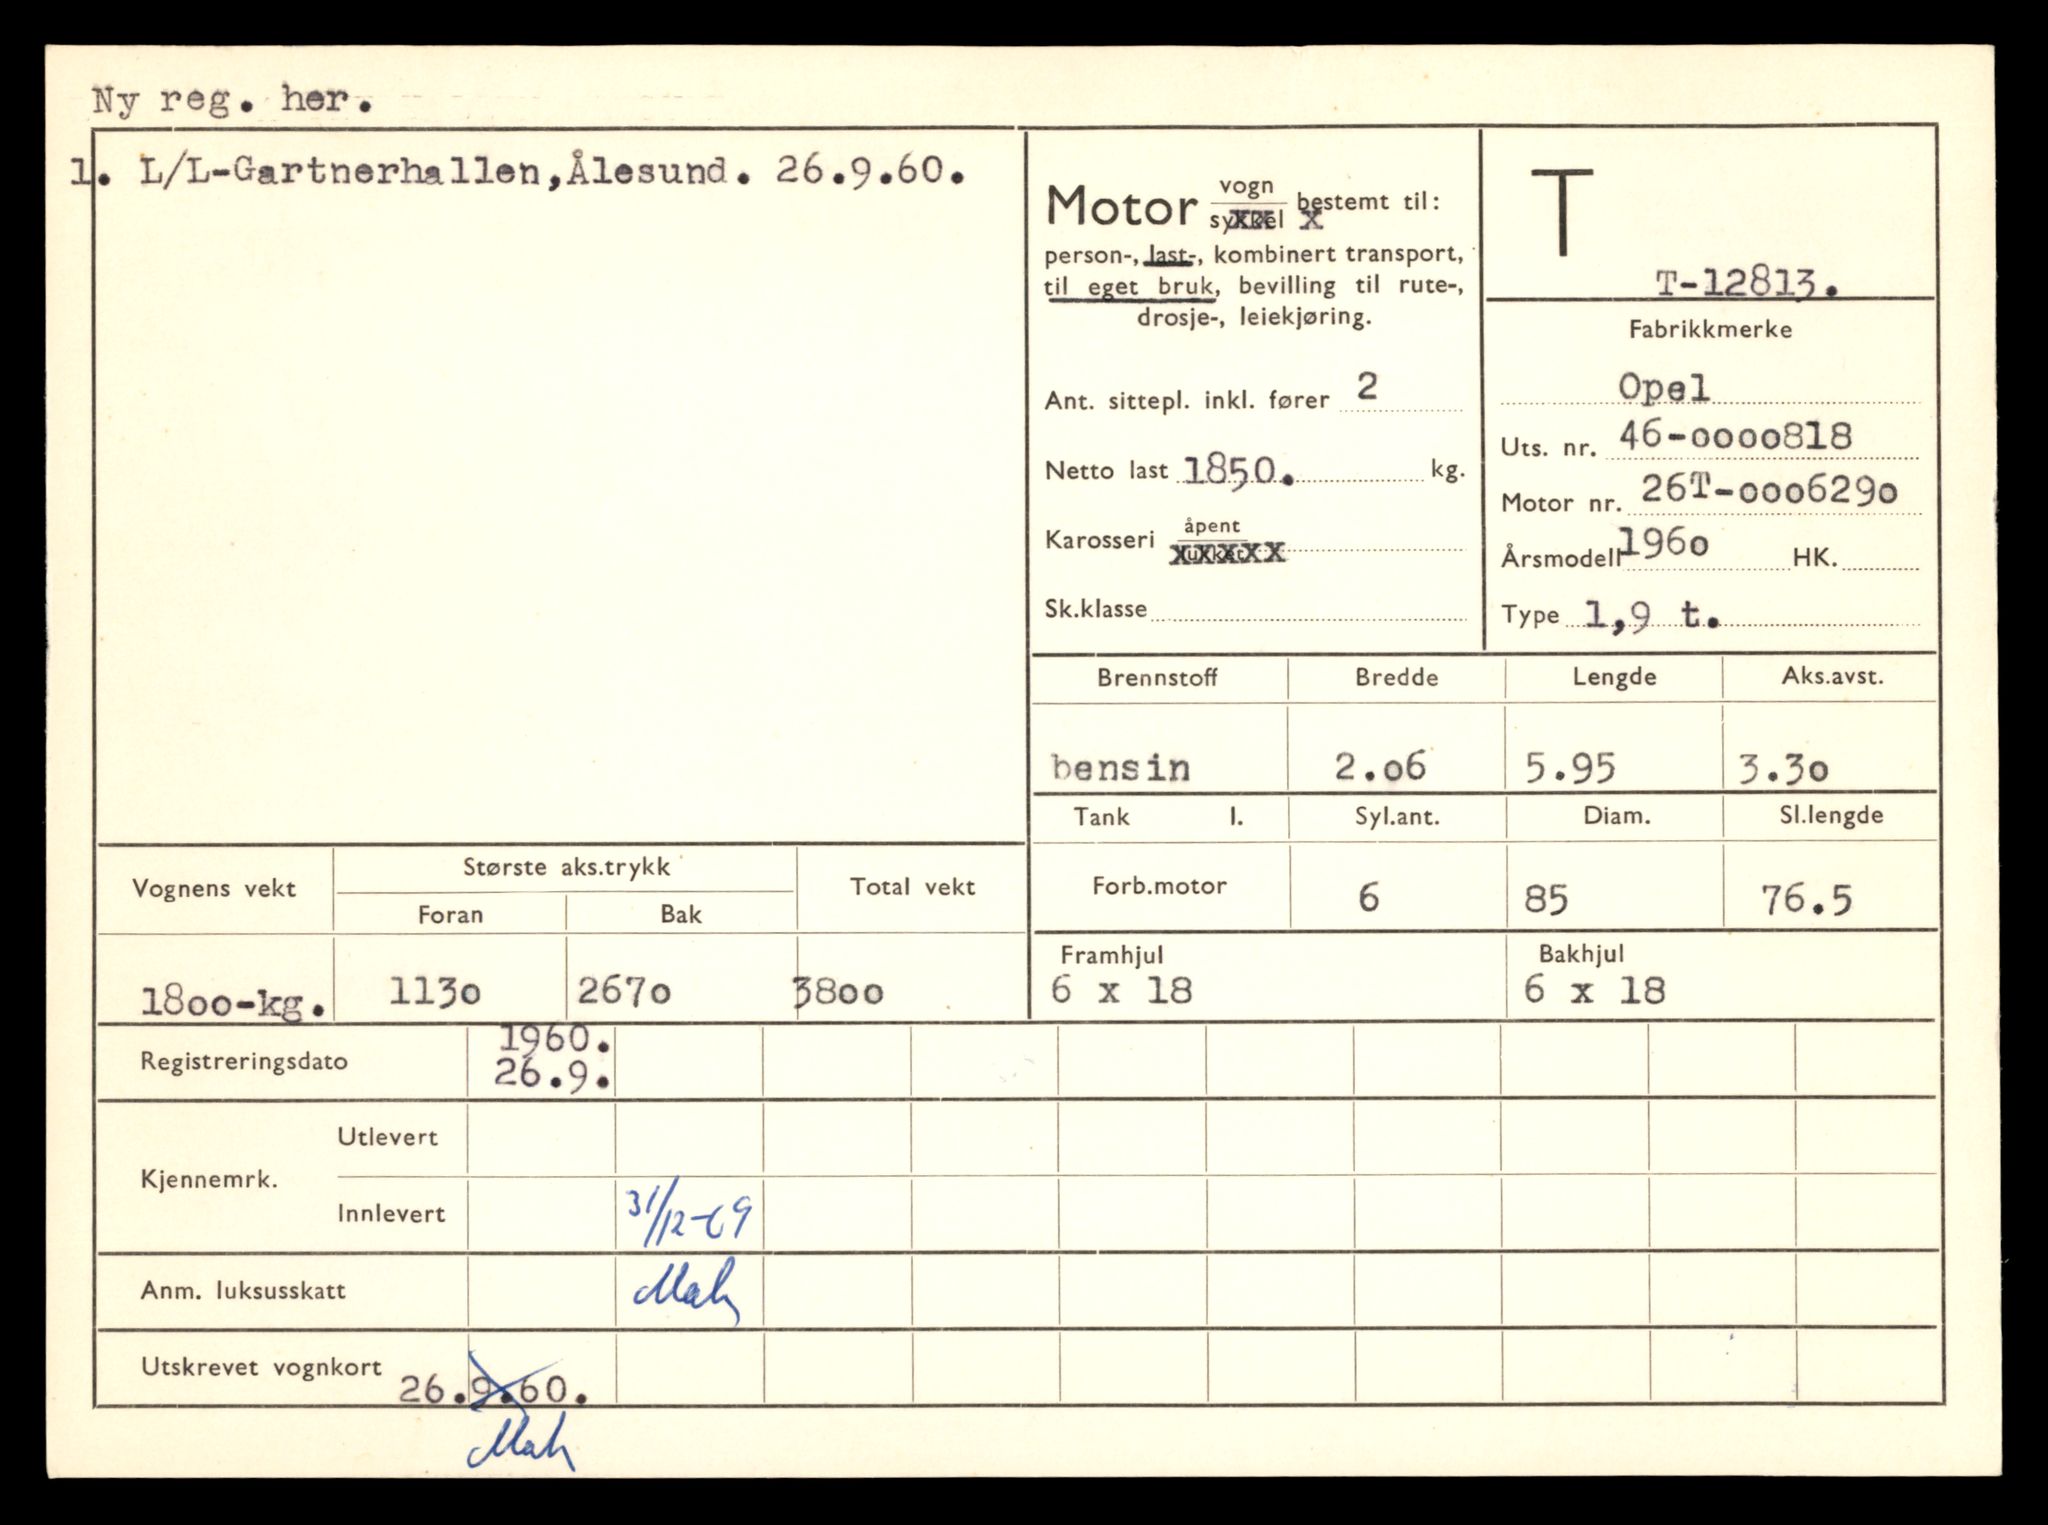 Ny reg. her.
1. L/L-Gartnerhallen,Ålesund. 26.9.60.
Motor vogn
sykkel bestemt til:
person-, last-, kombinert transport,
til eget bruk, bevilling til rute-,
drosje-, leiekjøring.
Ant. sittepl. inkl. fører 2
Netto last 1850. kg.
Karosseri åpent
lukket
Sk.klasse
T
T-12813.
Fabrikkmerke
Opel
Uts. nr. 46-0000818
Motor nr. 26T-0006290
Årsmodell 1960 HK.
Type 1,9 t.
Brennstoff Bredde Lengde Aks.avst.
bensin 2.06 5.95 3.30
Tank l. Syl.ant. Diam. Sl.lengde
Forb.motor 6 85 76.5
Framhjul Bakhjul
6 x 18 6 x 18
Vognens vekt Største aks.trykk Total vekt
Foran Bak
1800-kg. 1130 2670 3800
Registreringsdato 1960.
26.9.
Kjennemrk. Utlevert
Innlevert 31/12-69
Anm. luksusskatt
Utskrevet vognkort 26.9.60.